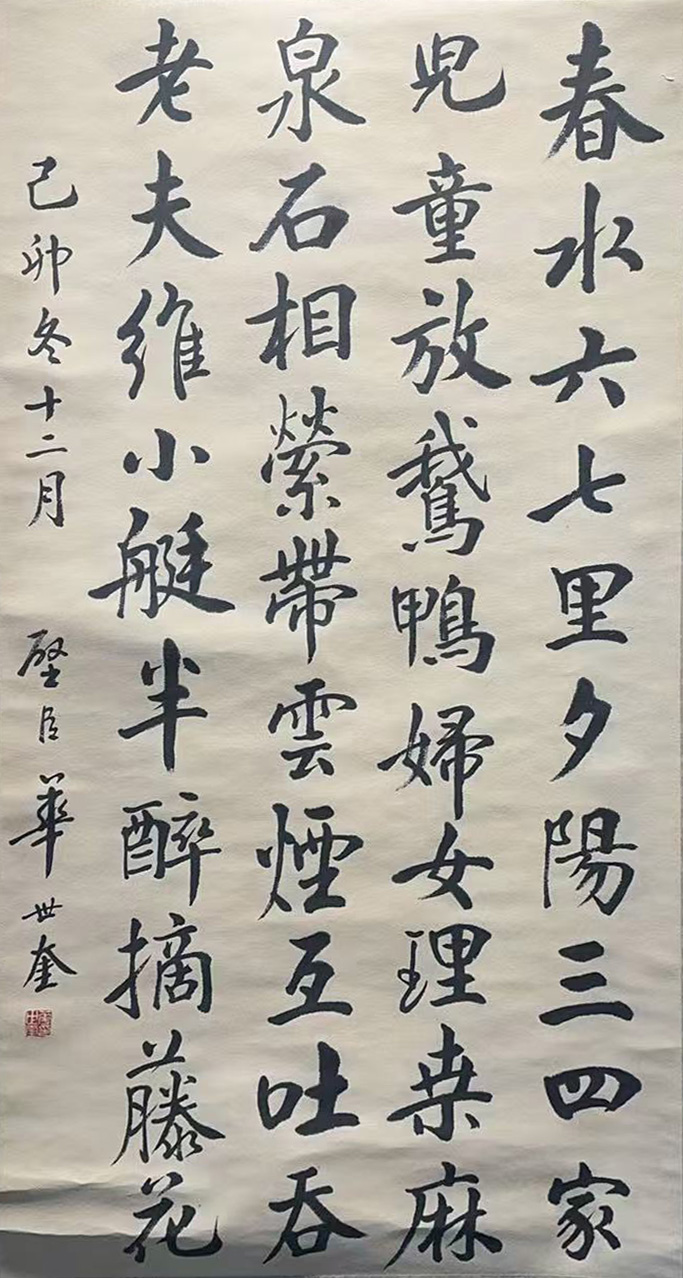 春水六七里夕陽三四家
児童放鵞鴨婦女理桒麻
泉石相縈帶雲煙互吐吞
老夫維小艇半醉摘藤花
己卯冬十二月 壁臣華世奎